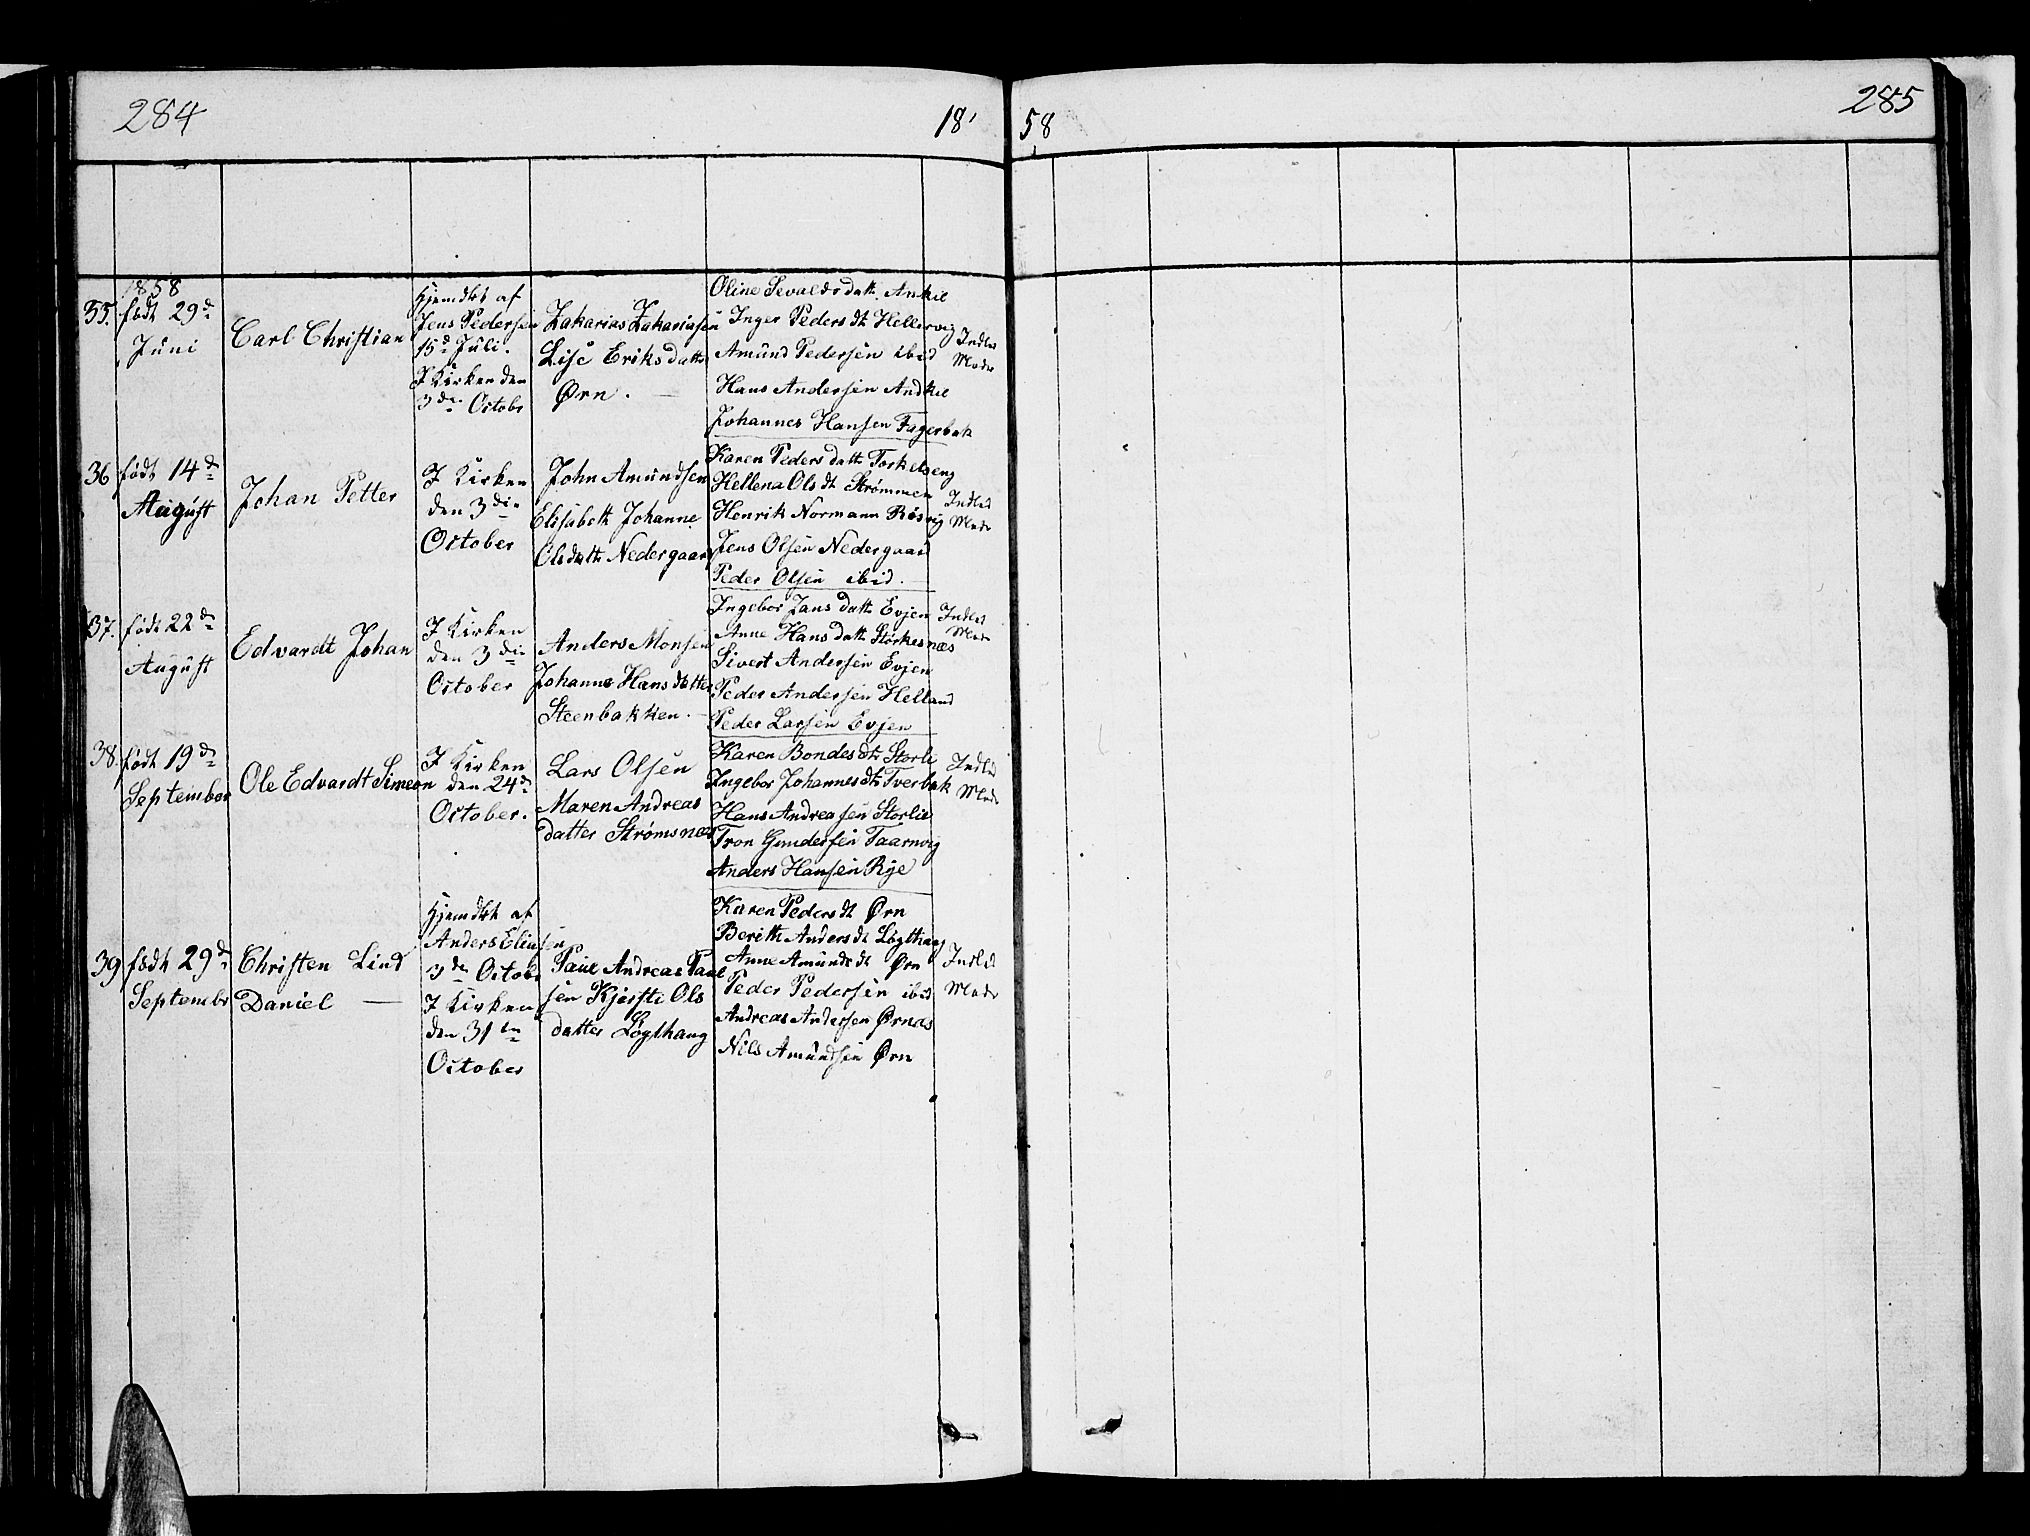 284
18
58
285
1858
35. født 29d
Juni
Carl Christian
Hjemdbt af
Jens Pedersen
15d Juli.
I Kirken den
3die Octobr
Zakarias Zakariasen
Lise Eriksdatter
Ørn. —
Oline Sevaldsdatt. Ankil
Inger Pedersdt Hellervig
Amund Pedersen ibid
Hans Andersen Andkil
Johannes Hansen Fagerbak
Indled
Moder
36 født 14d
August
Johan Petter
I Kirken
den 3die
October
John Amundsen
Elisabeth Johanne
Olsdatte Nedergaard
Karen Peders datt Torkelseng
Hellena Ols dt Strømmen
Henrik Normann Røsvig
Jens Olsen Nedergaard
Peder Olsen ibid. —
Indled
Modr
37. født 22d
August
Edvardt Johan
I Kirken
den 3die
October
Anders Monsen
Johanne Hans datter
Steenbakken. —
Ingebor Jans datt Evjen
Anne Hans datt Størkesnæs
Sivert Andersen Evjen
Peder Andersen Helland
Peder Larsen Evjen
Indled
Modr
38. født 19d
September
Ole Edvardt Simeon
I Kirken
den 24d
October.
Lars Olsen
Maren Andreas
datter Strømsnæs
Karen Bondesdt Storli
Ingebor Johannesdt Tverbak
Hans Andreasen Storlie
Tron Gundersen Taarnvig
Anders Hansen Rye
Indled
Modr
39 født 29d
Septembr
Christen Lind
Daniel —
Hjemdbt af
Anders Eliasen
3die Octobr
I Kirken
den 31te
October
Paul Andreas Paul
sen Kjerste Ols
datter Løgthaug
Karen Pedersdt Ørn
Berith Andersdt Løgthaug
Anne Amundsdt Ørn
Peder Pedersen ibid
Andreas Andersen Ørnæs
Nils Amundsen Ørn
Indled
Modr